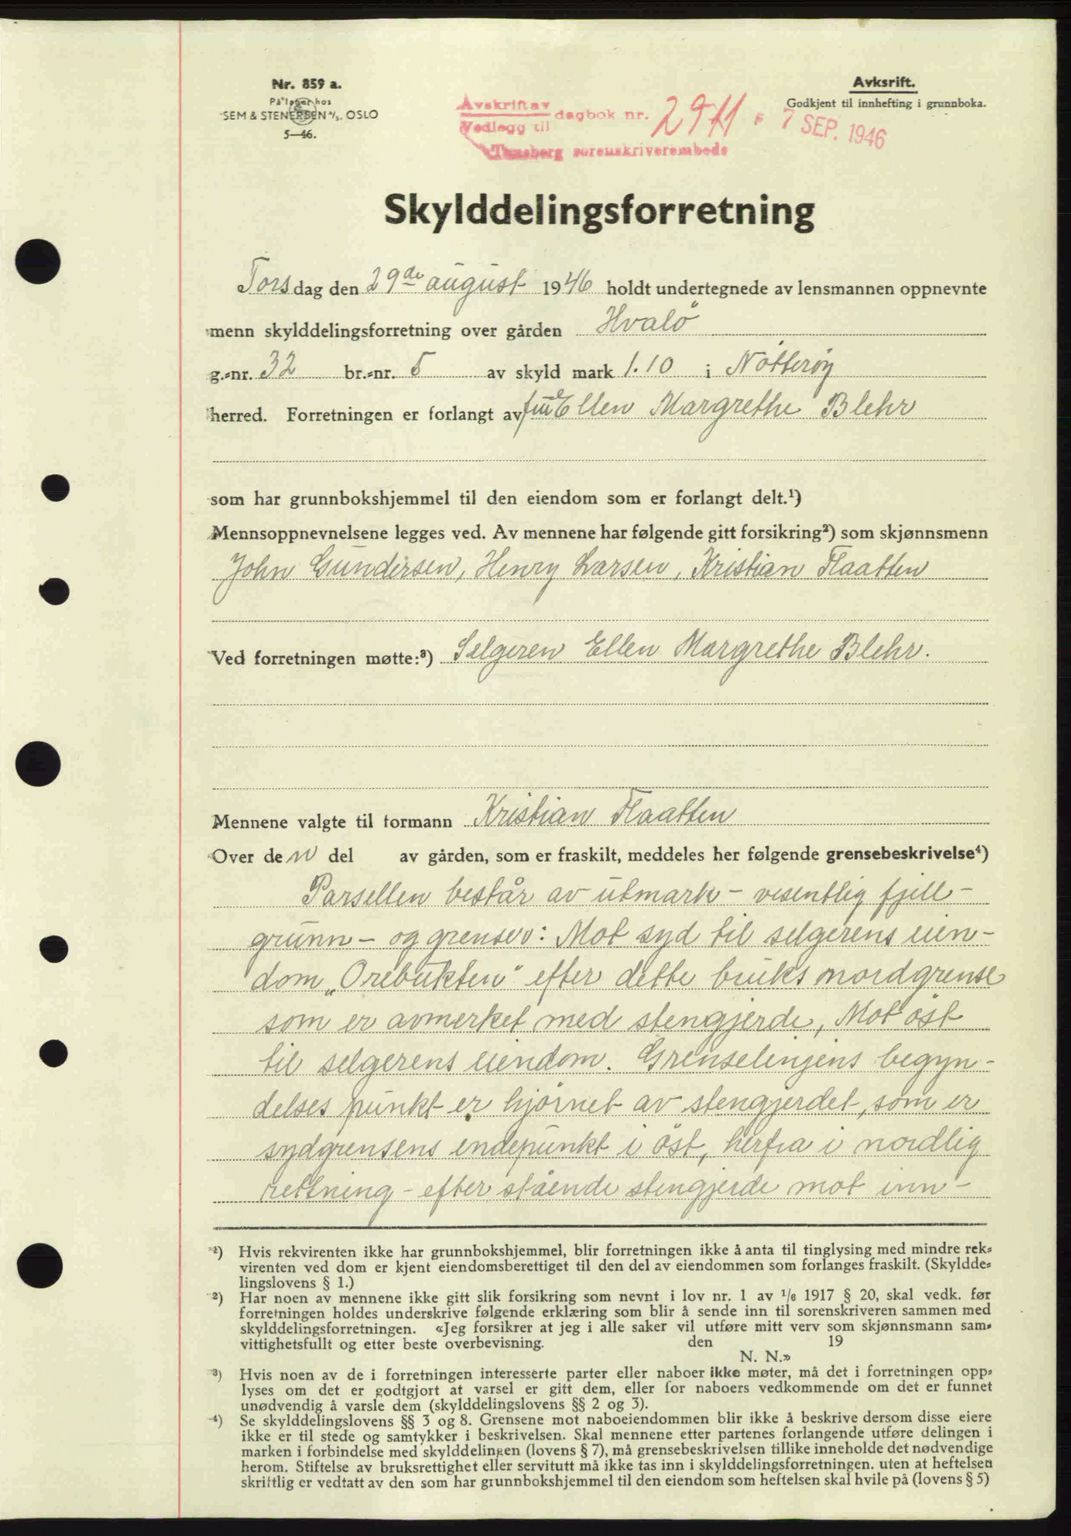 Nr. 859 a.
På lager hos
SEM & STENERSEN A/S. OSLO
5—46.
Avskrift av
Vedlegg til dagbok nr. 2911
Tønsberg sorenskriverembede
7 SEP. 1946
Avksrift.
Godkjent til innhefting i grunnboka.
Skylddelingsforretning
Torsdag den 29de august 1946 holdt undertegnede av lensmannen oppnevnte
menn skylddelingsforretning over gården Hvalö
g.-nr. 32 br.-nr. 5 av skyld mark 1.10 i Nötterøy
herred. Forretningen er forlangt av frue Ellen Margrethe Blehr
som har grunnbokshjemmel til den eiendom som er forlangt delt.¹)
Mennsoppnevnelsene legges ved. Av mennene har følgende gitt forsikring²) som skjønnsmenn
John Gundersen, Henry Larsen, Kristian Flaatten
Ved forretningen møtte:³) Selgeren Ellen Margrethe Blehr.
Mennene valgte til formann Kristian Flaatten
Over den del av gården, som er fraskilt, meddeles her følgende grensebeskrivelse⁴)
Parsellen består av utmark - vesentlig fjell-
grunn - og grenser: Mot syd til selgerens eien-
dom „Orebukten" efter dette bruks nordgrense
som er avmerket med stengjerde, Mot öst
til selgerens eiendom. Grenselinjens begyn-
delses punkt er hjörnet av stengjerdet, som er
sydgrensens endepunkt i öst, herfra i nordlig
retning - efter stående stengjerde mot inn-
¹) Hvis rekvirenten ikke har grunnbokshjemmel, blir forretningen ikke å anta til tinglysing med mindre rek-
virenten ved dom er kjent eiendomsberettiget til den del av eiendommen som forlanges fraskilt. (Skyldde-
lingslovens § 1.)
²) Har noen av mennene ikke gitt slik forsikring som nevnt i lov nr. 1 av 1/6 1917 § 20, skal vedk. før
forretningen holdes underskrive følgende erklæring som blir å sende inn til sorenskriveren sammen med
skylddelingsforretningen. «Jeg forsikrer at jeg i alle saker vil utføre mitt verv som skjønnsmann sam-
vittighetsfullt og etter beste overbevisning. den 19
N. N.»
³) Hvis noen av de i forretningen interesserte parter eller naboer ikke møter, må det i forretningen opp-
lyses om det er godtgjort at varsel er gitt dem, eller for naboers vedkommende om det er funnet
unødvendig å varsle dem (skylddelingslovens §§ 2 og 3).
⁴) Se skylddelingslovens §§ 3 og 8. Grensene mot naboeiendommen blir ikke å beskrive dersom disse eiere
ikke er til stede og samtykker i beskrivelsen. Skal mennene etter partenes forlangende utføre delingen i
marken i forbindelse med skylddelingen (lovens § 7), må grensebeskrivelsen tillike inneholde det nødvendige
herom. Stiftelse av bruksrettighet eller servitutt må ikke tas inn i skylddelingsforretningen. uten at heftelsen
skriftlig er vedtatt av den som har grunnbokshjemmel til den eiendom som heftelsen skal hvile på (lovens § 5)